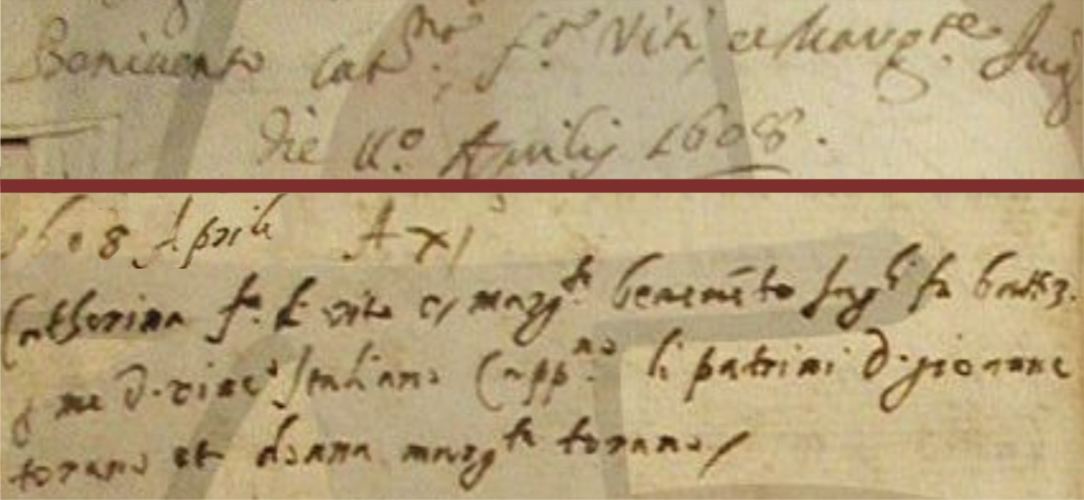 Beniuento Cat.na f.a Viti, et Marg.te Jug
Die 11.o Aprilis 1608.
1608 Aprile A xj
Catherina f.a de vito et marg.ta beneuēto Jug.li fu battiz.
p me D. vinc.o Italiano Capp.no li patrini D. gioanne
torano et donna marg.ta torano